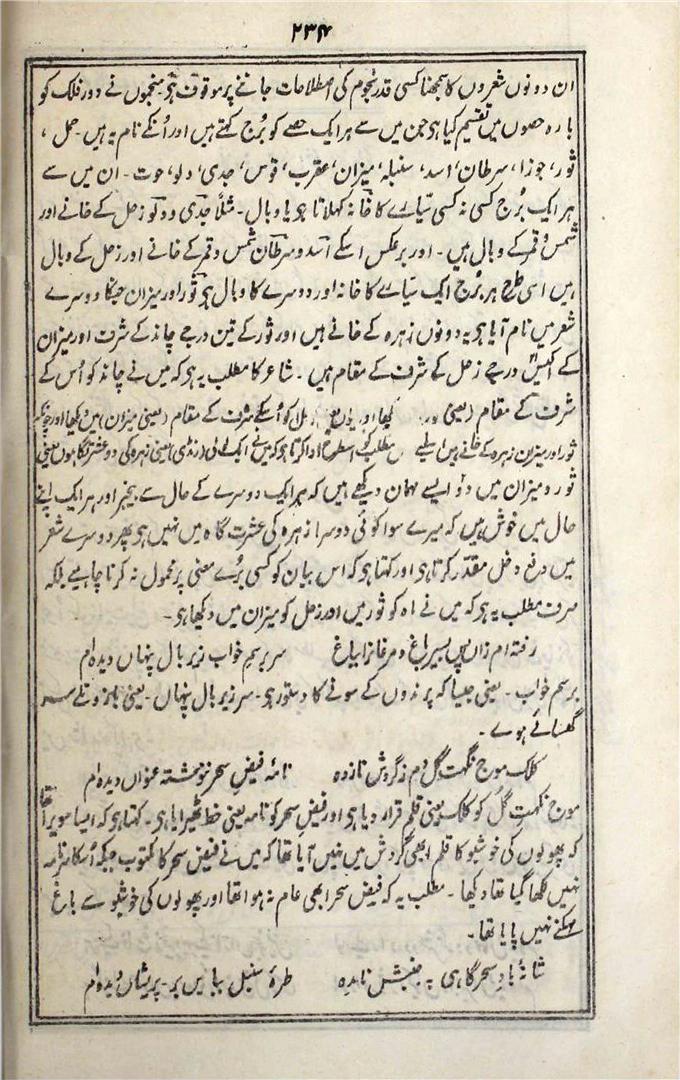 ۲۳۴
ان دونوں شعروں کا سمجھنا کسی قدر نجوم کی اصطلاحات جاننے پر موقوف ہی منجموں نے دور فلک کو
بارہ حصوں میں تقسیم کیا ہی جن میں سے ہر ایک حصے کو بُرج کہتے ہیں اور اُنکے نام یہ ہیں۔ حمل،
ثور، جوزا، سرطان، اسد، سنبلہ، میزان، عقرب، قوس، جدی، دلو، حوت۔ ان میں سے
ہر ایک بُرج کسی نہ کسی سیّارے کا خانہ کہلاتا ہو یا وبال۔ مثلاً جدی و دلو زحل کے خانے اور
شمس و قمر کے وبال ہیں۔ اور برعکس اسکے اسد و سرطان شمس و قمر کے خانے اور زحل کے وبال
ہیں اسی طرح ہر بُرج ایک سیّارے کا خانہ اور دوسرے کا وبال ہی ثور اور میزان جنکا دوسرے
شعر میں نام آیا ہو یہ دونوں زہرہ کے خانے ہیں اور ثور کے تین درجے چاند کے شرف اور میزان
کے اکیس درجے زحل کے شرف کے مقام ہیں۔ شاعر کا مطلب یہ ہو کہ میں نے چاند کو اُس کے
شرف کے مقام (یعنی کو اُسکے شرف کے مقام (یعنی میزان) میں دیکھا اور چونکہ
ثور اور میزان زہرہ کے خانے ہیں اسلیے مطلب کو اسطرح ادا کرتا ہو کہ میں نے ایک لُولی (رنڈی) یعنی زہرہ کی دو عشرتگاہوں یعنی
ثور و میزان میں دو ایسے مہمان دیکھے ہیں کہ ہر ایک دوسرے کے حال سے بیخبر اور ہر ایک اپنے
حال میں خوش ہیں کہ میرے سوا کوئی دوسرا زہرہ کی عشرت گاہ میں نہیں ہی پھر دوسرے شعر
میں دفع دخل مقدّر کرتا ہی اور کہتا ہو کہ اس بیان کو کسی بُرے معنی پر محمول نہ کرنا چاہیے بلکہ
صرف مطلب یہ ہو کہ میں نے ماہ کو ثور میں اور زحل کو میزان میں دیکھا ہو۔
رفتہ ام زاں پس بسیر باغ و مرغانرا بباغ سر برسم خواب زیر بال پنہاں دیدہ ام
برسم خواب۔ یعنی جیسا کہ پرندوں کے سونے کا دستور ہو۔ سر زیر بال پنہاں۔ یعنی بازو تلے سر
گھسائے ہوے۔
کلک موج نکہت گل دم ز گردش نازدہ نامۂ فیض سحر ننوشتہ عنواں دیدہ ام
موج نکہت گُل کو کلک یعنی قلم قرار دیا ہی اور فیض سحر کو نامہ یعنی خط ٹھیرایا ہی۔ کہتا ہو کہ ایسا سویرا تھا
کہ پھولوں کی خوشبو کا قلم ابھی گردش میں نہیں آیا تھا کہ میں نے فیض سحر کا مکتوب جبکہ اُسکا سرنامہ
نہیں لکھا گیا تھا دیکھا۔ مطلب یہ کہ فیض سحر ابھی عام نہ ہوا تھا اور پھولوں کی خوشبو سے باغ
مہکنے نہیں پایا تھا۔
شانۂ باد سحرگاہی بہ جنبش نامدہ طرۂ سنبل ببالیں بر پریشاں دیدہ ام